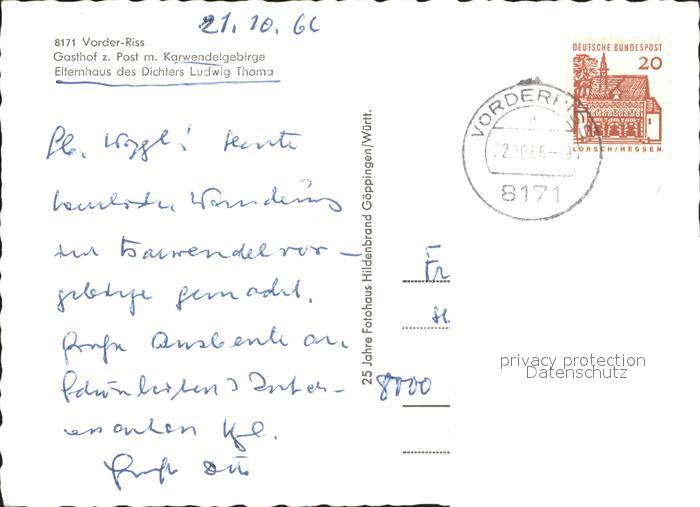 21.10.66
8171 Vorder-Riss
Gasthof z. Post m. Karwendelgebirge
Elternhaus des Dichters Ludwig Thoma
DEUTSCHE BUNDESPOST
20
LORSCH/HESSEN
VORDERRISS
a
22.10.66-9
8171
Lb. Wiggl! Heute
herrliche Wanderung
im Karwendelvor-
gebirge gemacht.
Große Ausbeute an
Schönheiten & Inter-
essantem
Gruß
25 Jahre Fotohaus Hildenbrand Göppingen/Württ.
Fr
8000
privacy protection
Datenschutz